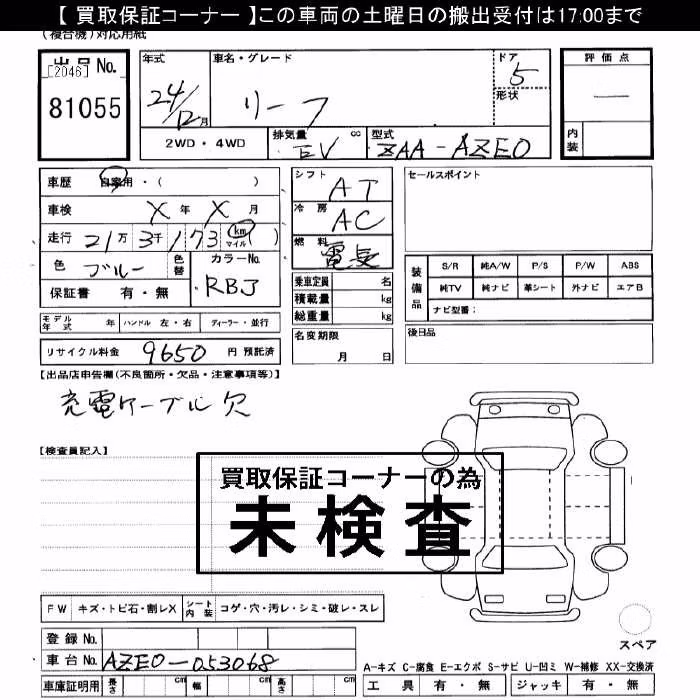 【 買取保証コーナー 】この車両の土曜日の搬出受付は17:00まで
(複合機)対応用紙
出品 No.
[2046]
81055
年式 24/12 月
車名・グレード リーフ
ドア 5
形状
評価点 —
内装
2WD・4WD
排気量 cc EV
型式 ZAA-AZE0
車歴 自家用・( )
車検 X 年 X 月
走行 21万 3千 173 km マイル ( )
色 ブルー 色替
カラーNo. RBJ
保証書 有・無
シフト AT
冷房 AC
燃料 電気
乗車定員 名
積載量 kg
総重量 kg
セールスポイント
装備品 S/R 純A/W P/S P/W ABS
純TV 純ナビ 革シート 外ナビ エアB
ナビ型番:
モデル年式 年 ハンドル 左・右 ディーラー・並行
名変期限 月 日
後日品
リサイクル料金 9650 円 預託済
【出品店申告欄(不良箇所・欠品・注意事項等)】
充電ケーブル欠
【検査員記入】
買取保証コーナーの為
未検査
FW キズ・トビ石・割レX シート内装 コゲ・穴・汚レ・シミ・破レ・スレ
登録 No.
車台 No. AZE0-053068
車庫証明用 長さ cm 幅 cm 高さ cm
スペア
A-キズ C-腐食 E-エクボ S-サビ U-凹ミ W-補修 XX-交換済
工具 有・無 ジャッキ 有・無